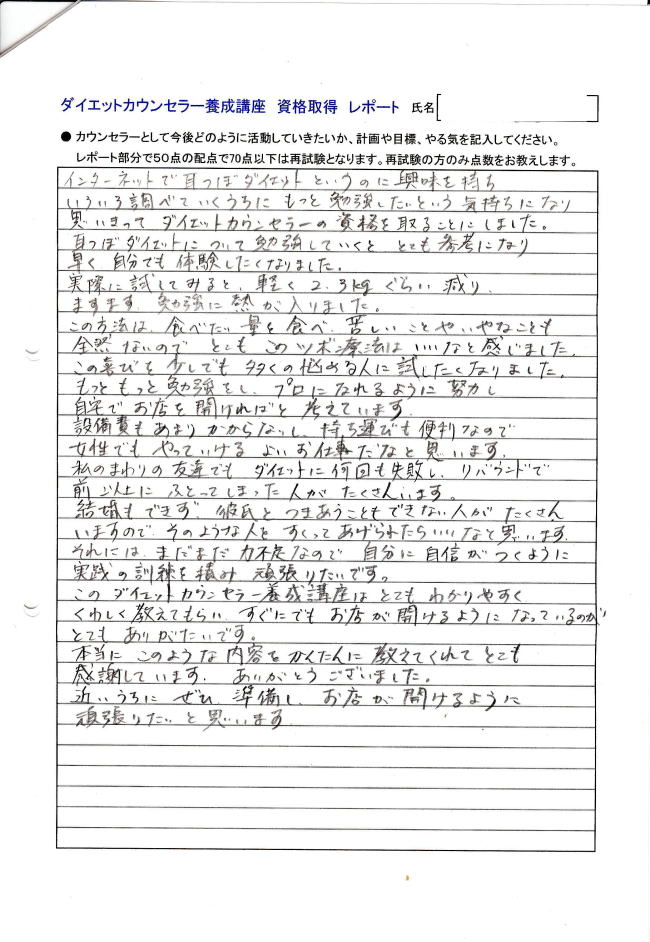 ダイエットカウンセラー養成講座 資格取得 レポート 氏名
● カウンセラーとして今後どのように活動していきたいか、計画や目標、やる気を記入してください。
レポート部分で50点の配点で70点以下は再試験となります。再試験の方のみ点数をお教えします。
インターネットで耳つぼダイエットというのに興味を持ち
いろいろ調べていくうちに もっと勉強したいという気持ちになり
思いきって ダイエットカウンセラーの資格を取ることにしました。
耳つぼダイエットについて勉強していくと とても参考になり
早く自分でも体験したくなりました。
実際に試してみると、軽く2.3kgぐらい減り、
ますます勉強に熱が入りました。
この方法は、食べたい量を食べ、苦しいことやいやなことも
全然ないので とてもこのツボ療法はいいなと感じました。
この喜びを少しでも多くの悩める人に試したくなりました。
もっともっと勉強をし、プロになれるように努力し
自宅でお店を開ければと考えています。
設備費もあまりかからないし、持ち運びも便利なので
女性でもやっていける よいお仕事だなと思います。
私のまわりの友達でも ダイエットに何回も失敗し、リバウンドで
前以上にふとってしまった人がたくさんいます。
結婚もできず、彼氏とつきあうこともできない人がたくさん
いますので、そのような人をすくってあげられたらいいなと思います。
それには、まだまだ力不足なので 自分に自信がつくように
実践の訓練を積み 頑張りたいです。
このダイエットカウンセラー養成講座はとてもわかりやすく
くわしく教えてもらい、すぐにでもお店が開けるようになっているのが
とてもありがたいです。
本当に このような内容をかんたんに教えてくれてとても
感謝しています。ありがとうございました。
近いうちに ぜひ、準備し、お店が開けるように
頑張りたいと思います